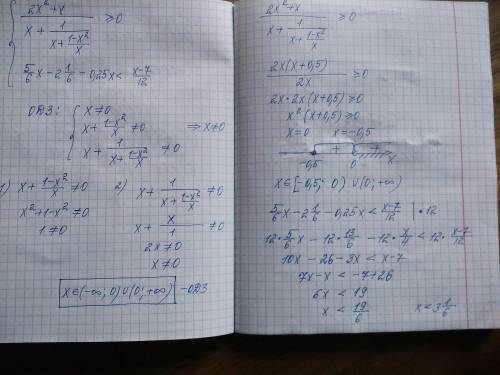 { (2x²+x)/(x + 1/(x + (1-x²)/x)) ≥ 0
5/6 x - 2 1/6 - 0,25x < (x-7)/12
ОДЗ: { x ≠ 0
x + (1-x²)/x ≠ 0 ⇒ x ≠ 0
x + 1/(x + (1-x²)/x) ≠ 0
1) x + (1-x²)/x ≠ 0
x² + 1 - x² ≠ 0
1 ≠ 0
2) x + 1/(x + (1-x²)/x) ≠ 0
x + x/1 ≠ 0
2x ≠ 0
x ≠ 0
x ∈ (-∞; 0) ∪ (0; +∞) - ОДЗ
(2x²+x)/(x + 1/(x + (1-x²)/x)) ≥ 0
2x(x+0,5)/2x ≥ 0
2x · 2x(x+0,5) ≥ 0
x²(x+0,5) ≥ 0
x = 0 x = -0,5
- + +
-0,5 0 x
x ∈ [-0,5; 0) ∪ (0; +∞)
5/6 x - 2 1/6 - 0,25x < (x-7)/12 | · 12
12 · 5/6 x - 12 · 13/6 - 12 · x/4 < 12 · (x-7)/12
10x - 26 - 3x < x - 7
7x - x < -7 + 26
6x < 19
x < 19/6 x < 3 1/6